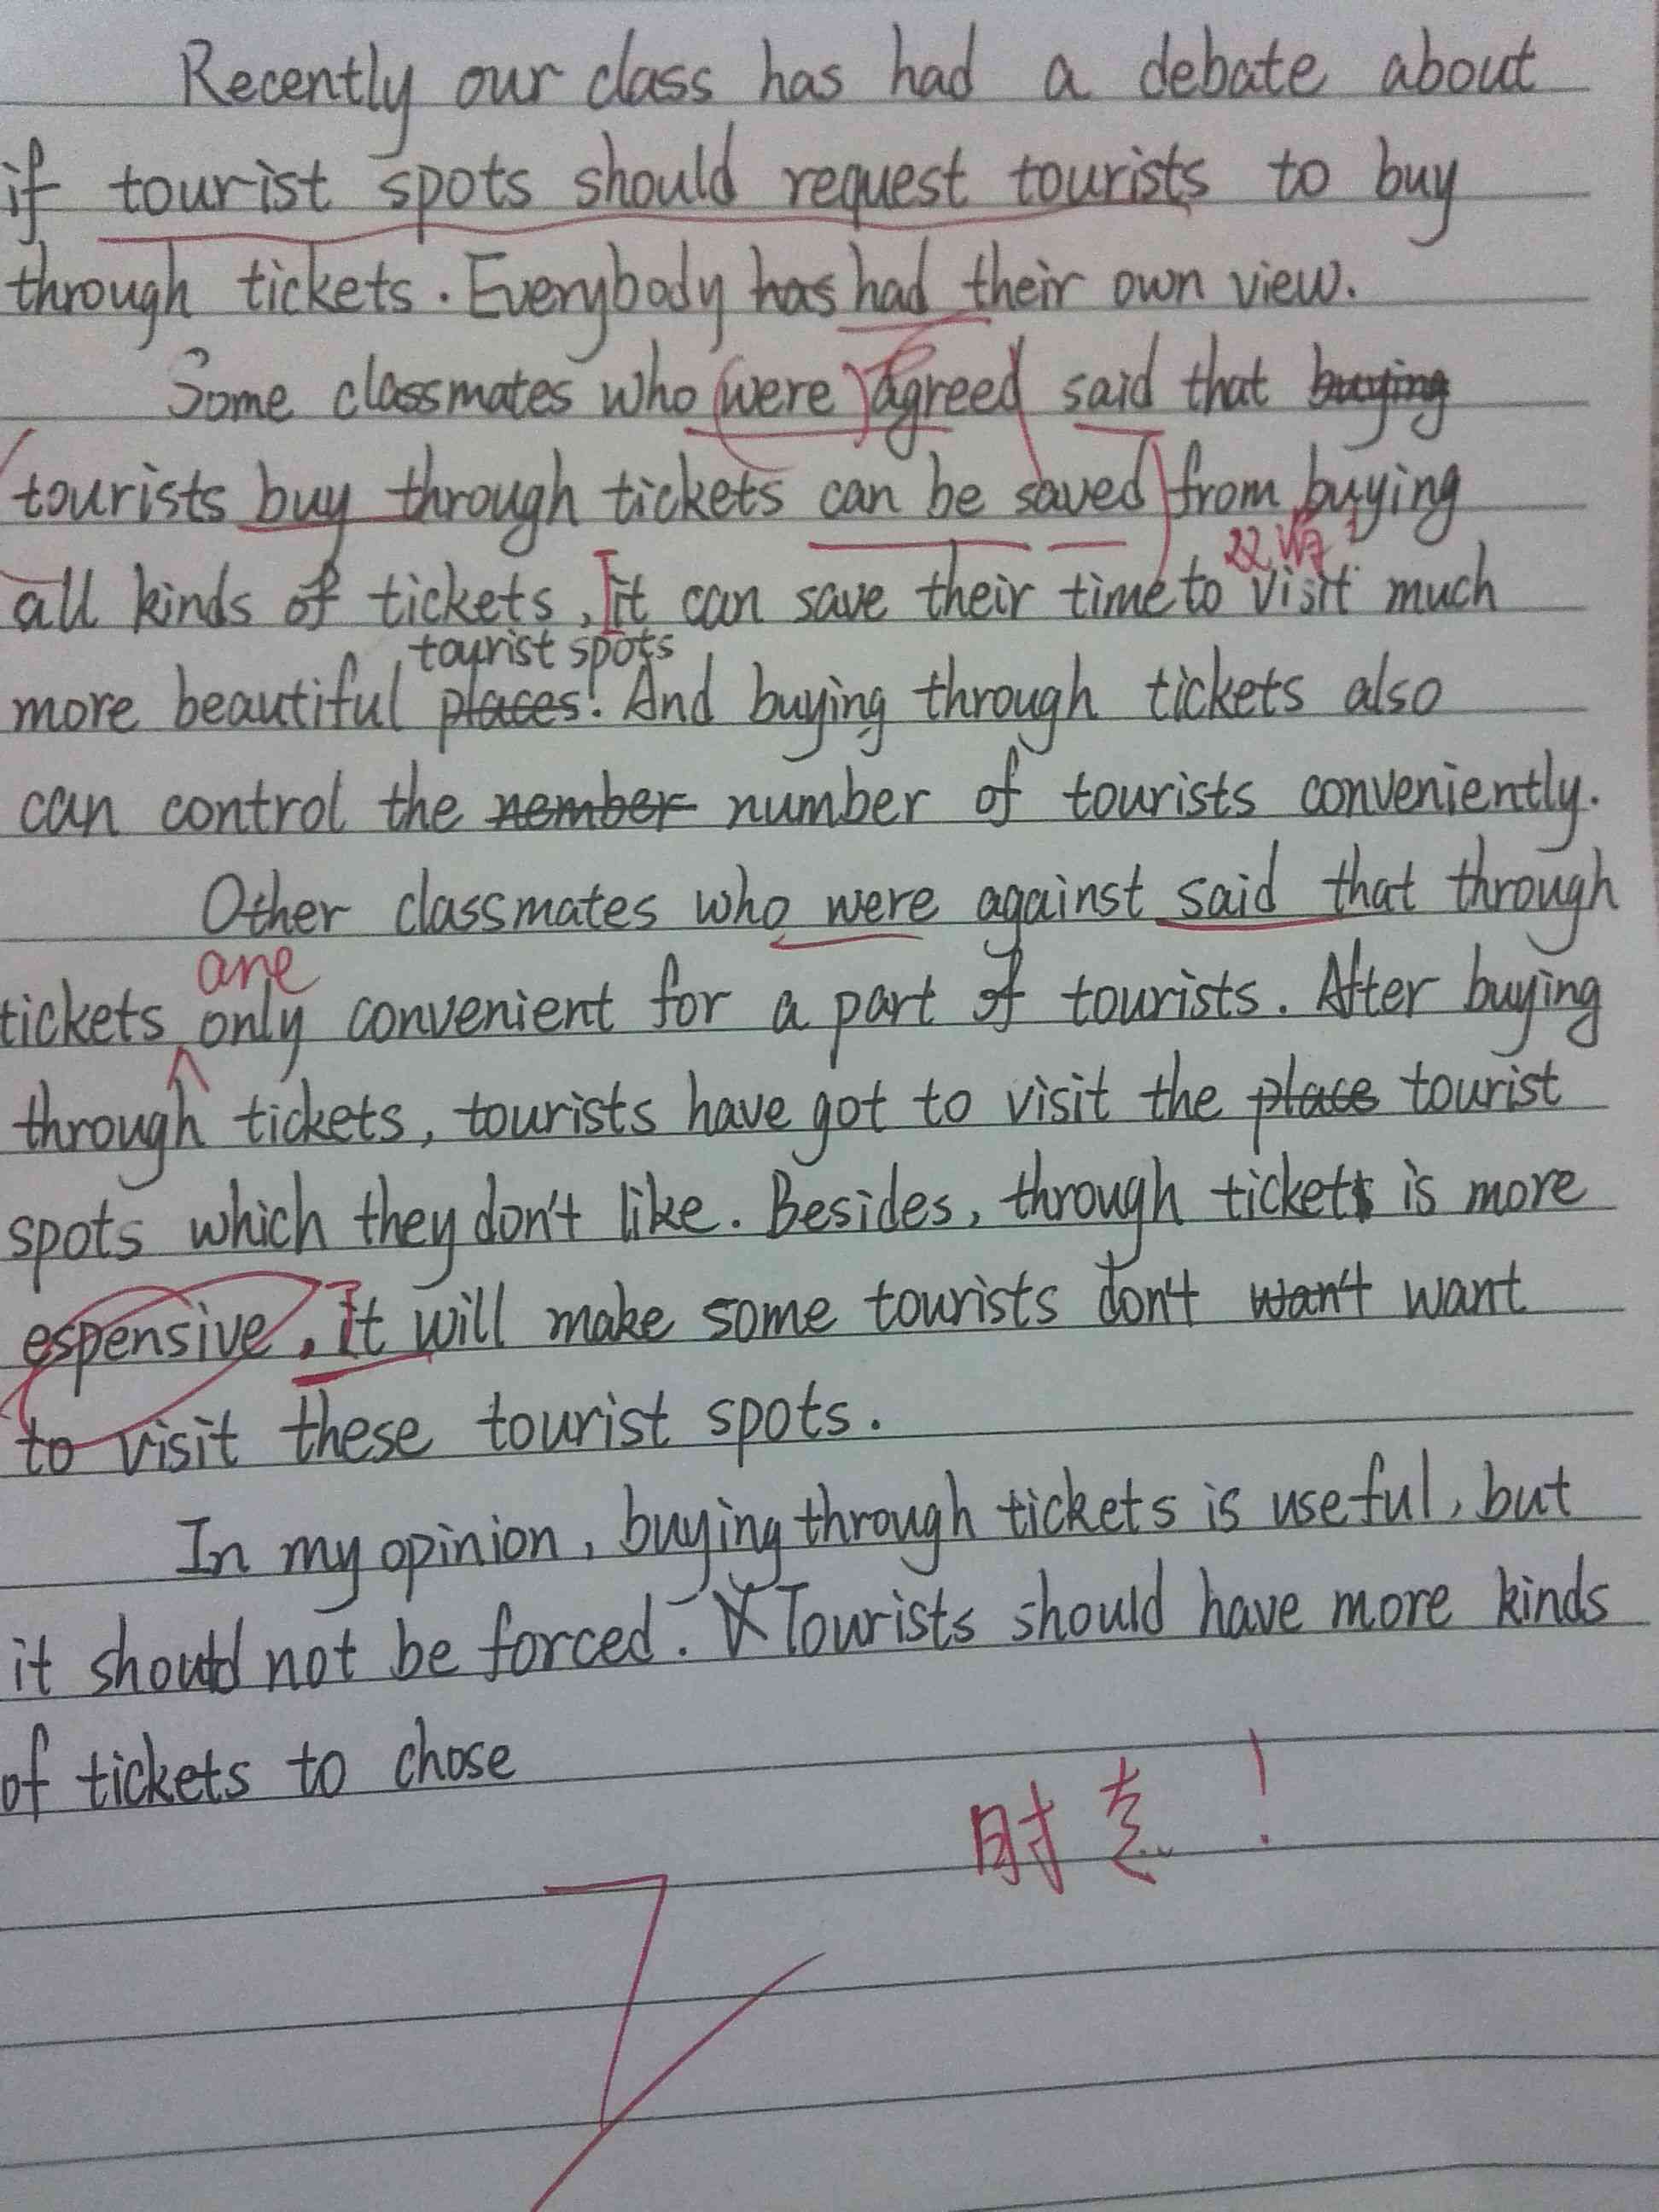 Recently our class has had a debate about
if tourist spots should request tourists to buy
through tickets. Everybody has had their own view.
Some classmates who were agreed said that buying
tourists buy through tickets can be saved from buying
all kinds of tickets, It can save their time to visit much
tourist spots
more beautiful places. And buying through tickets also
can control the nember number of tourists conveniently.
Other classmates who were against said that through
are
tickets only convenient for a part of tourists. After buying
through tickets, tourists have got to visit the place tourist
spots which they don't like. Besides, through ticket is more
espensive. It will make some tourists don't wan't want
to visit these tourist spots.
In my opinion, buying through tickets is useful, but
it should not be forced. Tourists should have more kinds
of tickets to chose
时态!